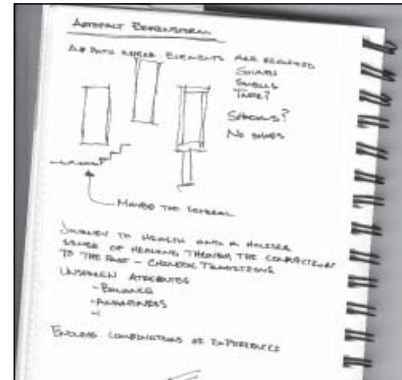 Artifact
A path where elements are revealed
Sounds
Smells
Shadows?
No shapes
Maybe too
Journey to health and a holistic
sense of healing through the connection
to the past – Chinook Traditions
Unspoken Attributes
- Balance
-
-
Endless combinations of experiences